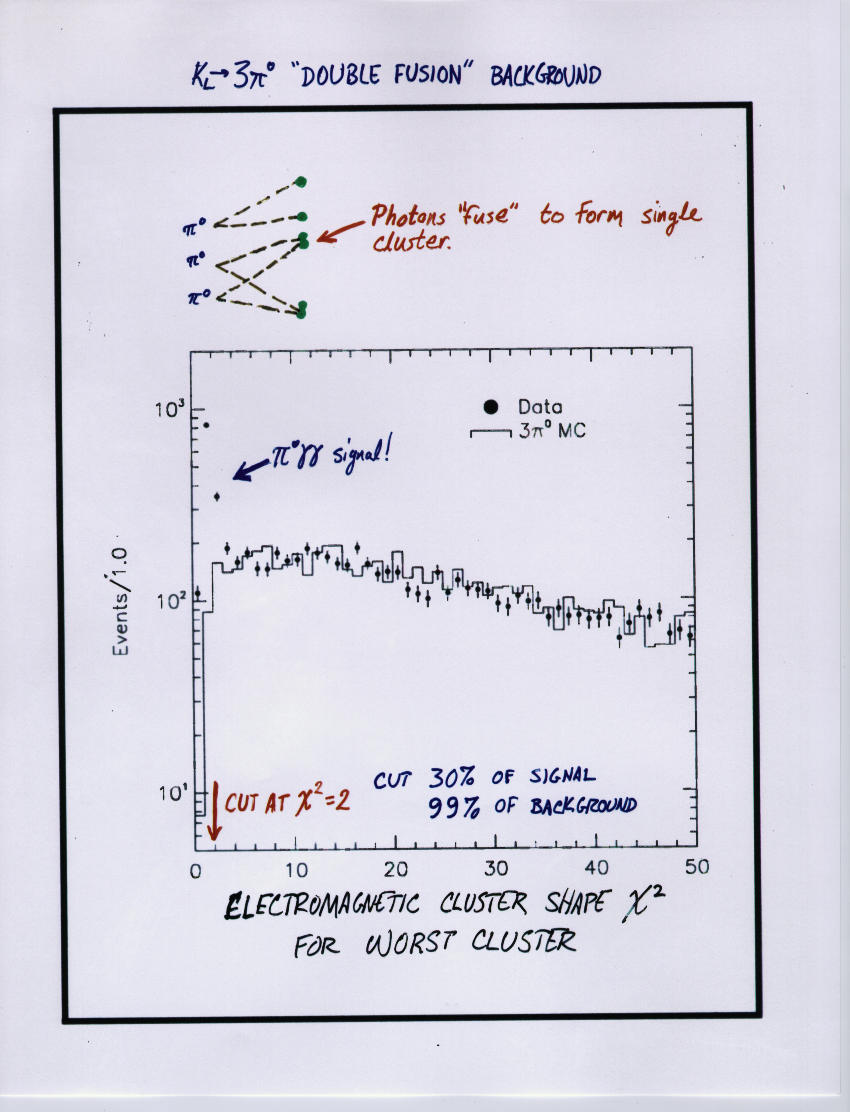 K_L→3π⁰ "DOUBLE FUSION" BACKGROUND
π⁰
π⁰
π⁰
Photons "fuse" to form single
cluster.
Data
3π⁰ MC
π⁰γγ signal!
10³
10²
10¹
Events/1.0
CUT AT χ²=2
CUT 30% OF SIGNAL
99% OF BACKGROUND
0 10 20 30 40 50
ELECTROMAGNETIC CLUSTER SHAPE χ²
FOR WORST CLUSTER